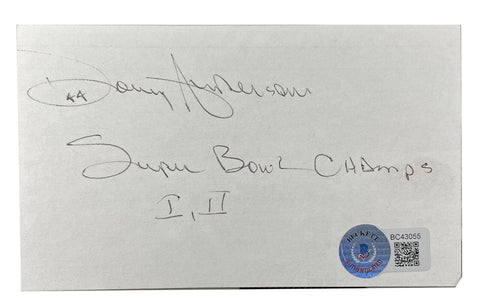 Donny Anderson
44
Super Bowl CHAmps
I, II
BECKETT
BC43055